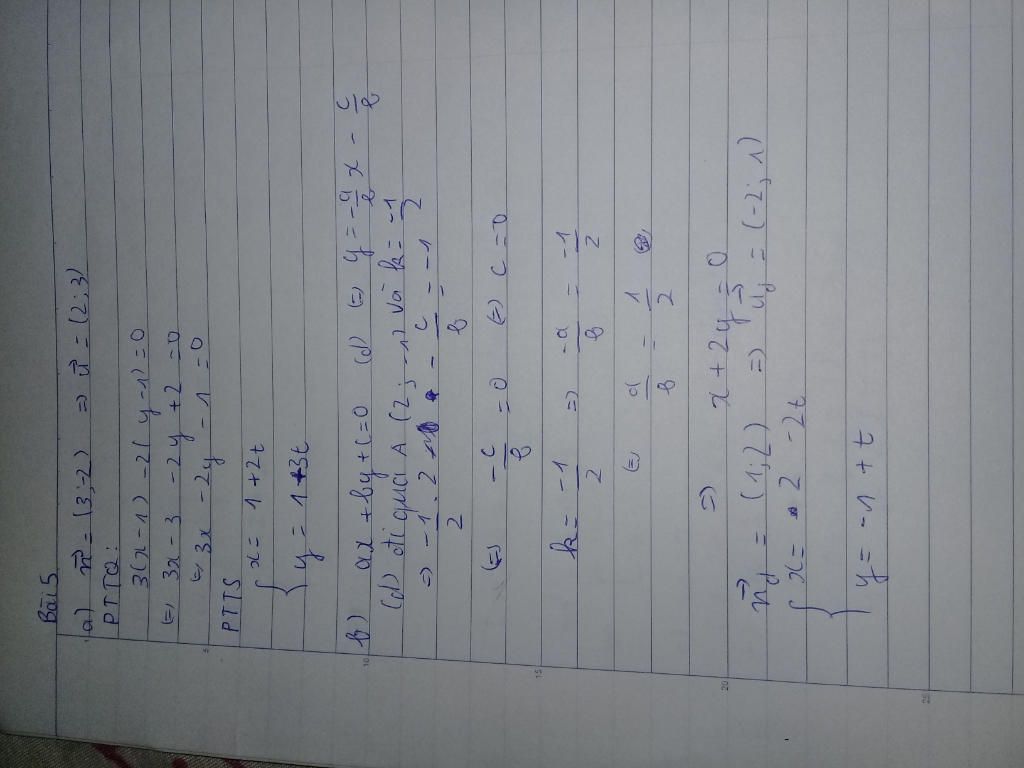 Bài 5
a) n⃗ = (3;-2) => u⃗ = (2;3)
PTTQ:
3(x-1) -2(y-1)=0
(=) 3x-3 -2y+2=0
(=) 3x -2y -1 =0
PTTS
{ x = 1+2t
y = 1+3t
b) ax+by+c=0 (d) (=) y = -a/b x - c/b
(d) đi qua A(2;-1) và k = -1/2
=> -1/2 . 2 - c/b = -1
(=) -c/b = 0 (=) c=0
k = -1/2 => -a/b = -1/2
(=) a/b = 1/2
=> x+2y=0
n⃗d = (1;2) => u⃗d = (-2;1)
{ x = 2 -2t
y = -1+t
5
10
15
20
25